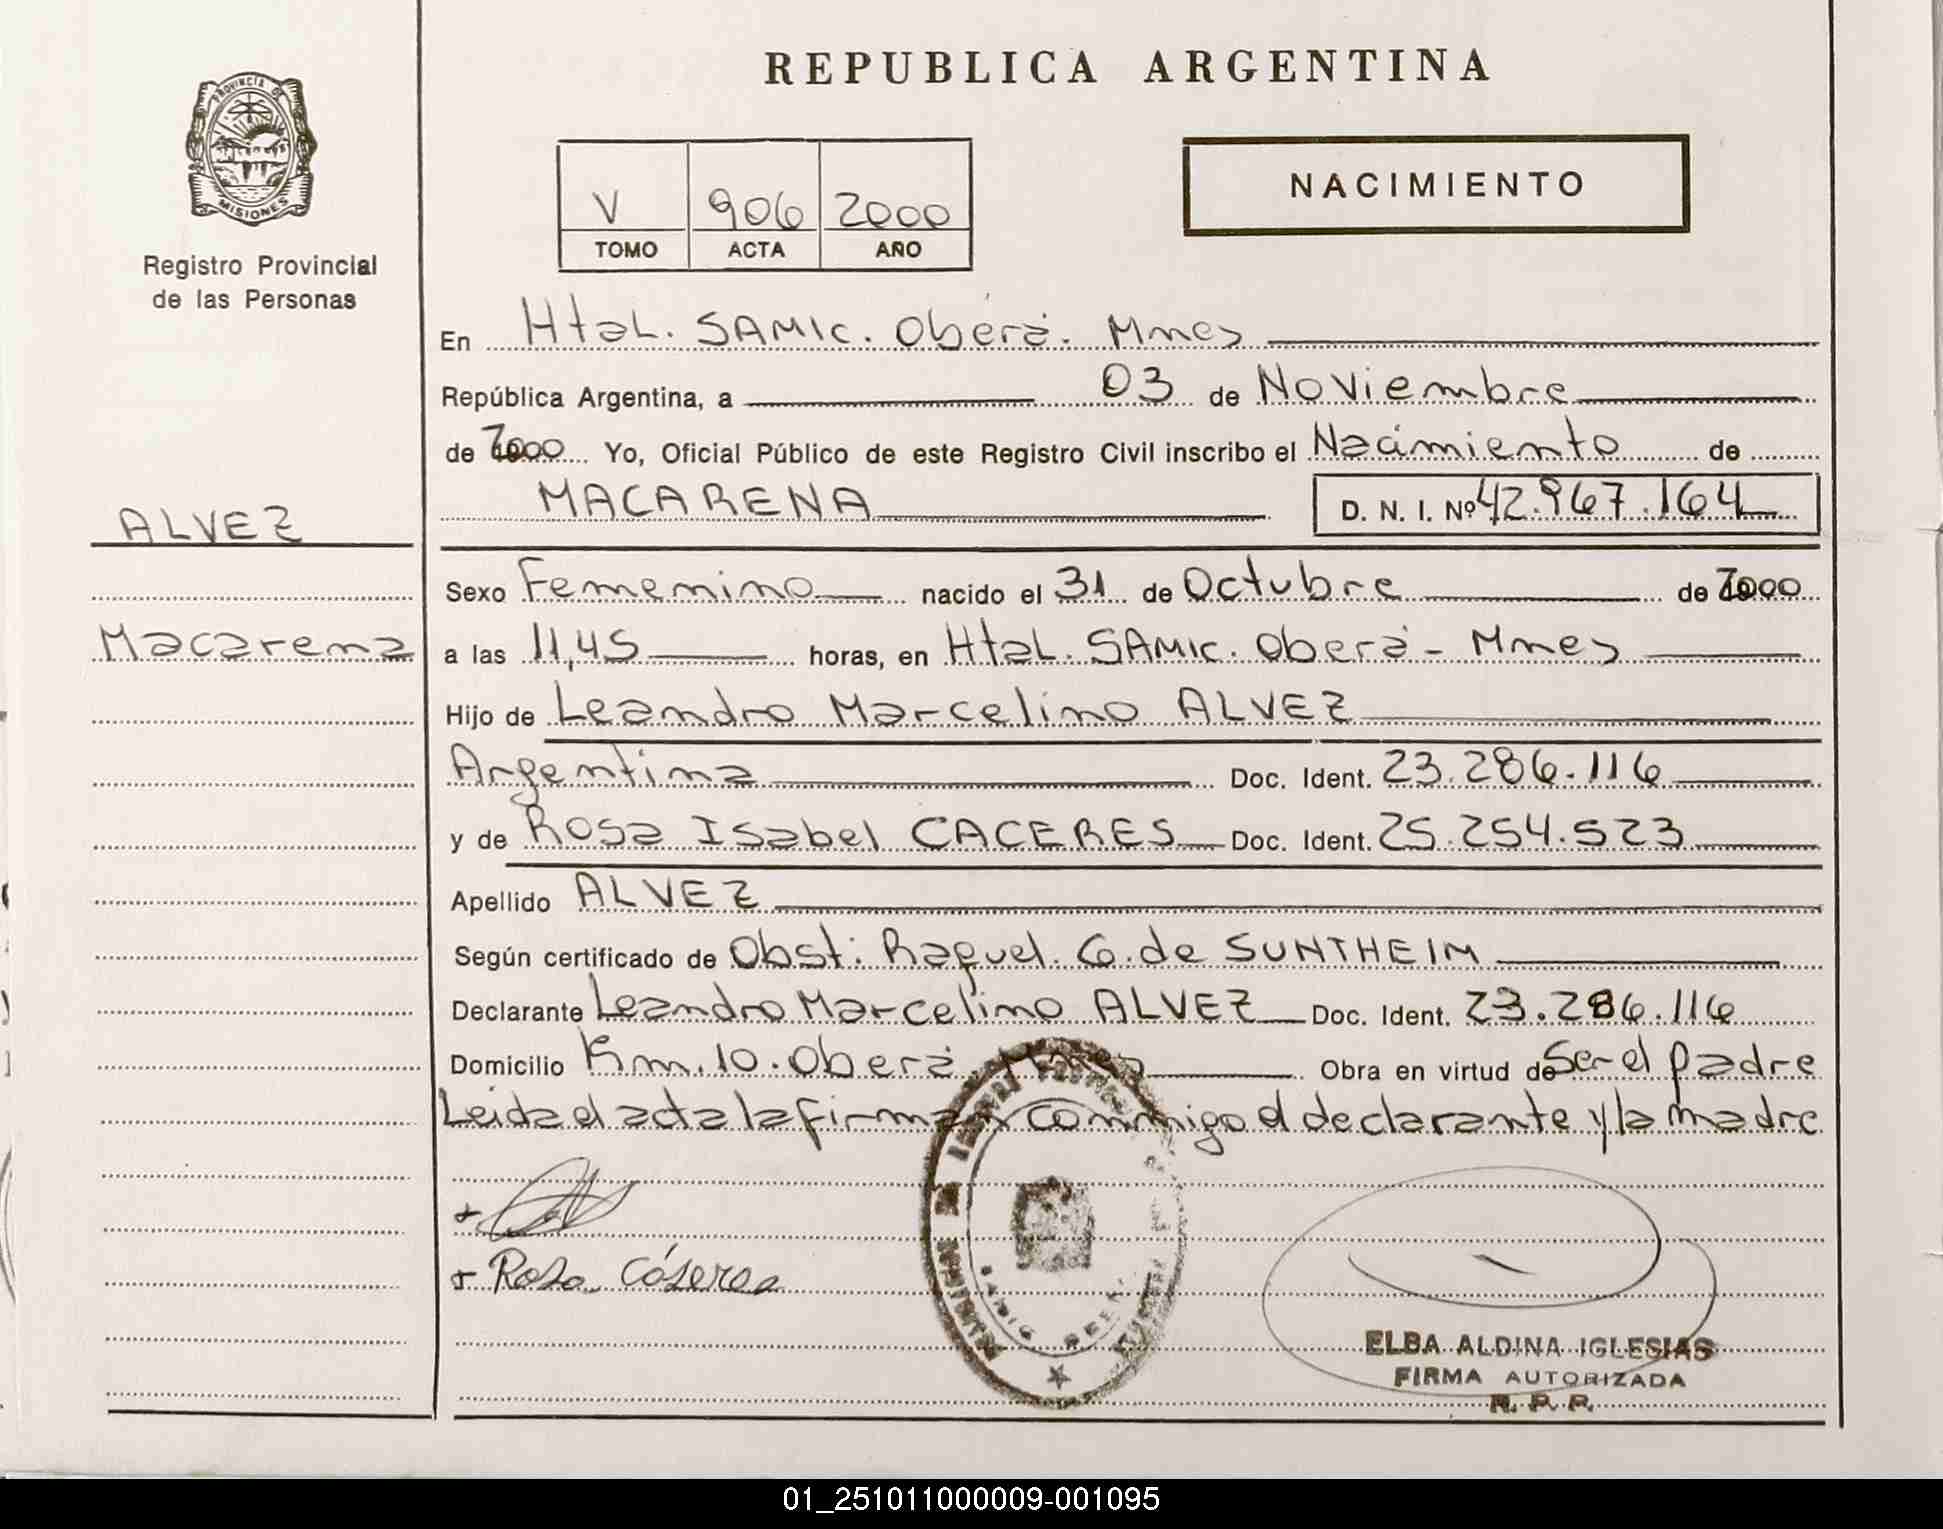 REPUBLICA ARGENTINA
PROVINCIA DE
MISIONES
Registro Provincial
de las Personas
V 906 2000
TOMO ACTA AÑO
NACIMIENTO
En Htal. SAMIC. Oberá. Mnes
República Argentina, a 03 de Noviembre
de 2000 Yo, Oficial Público de este Registro Civil inscribo el Nacimiento de
MACARENA D. N. I. Nº 42.967.164
ALVEZ
Macarena
Sexo Femenino nacido el 31 de Octubre de 2000
a las 11,45 horas, en Htal. SAMIC. Oberá - Mnes
Hijo de Leandro Marcelino ALVEZ
Argentina Doc. Ident. 23.286.116
y de Rosa Isabel CACERES Doc. Ident. 25.254.523
Apellido ALVEZ
Según certificado de Obst: Raquel. G. de SUNTHEIM
Declarante Leandro Marcelino ALVEZ Doc. Ident. 23.286.116
Domicilio Km. 10. Oberá. Mnes Obra en virtud de Ser el padre
Leida el acta la firman conmigo el declarante y la madre
+
+ Rosa Cáseres
ELBA ALDINA IGLESIAS
FIRMA AUTORIZADA
R. P. P.
01_251011000009-001095